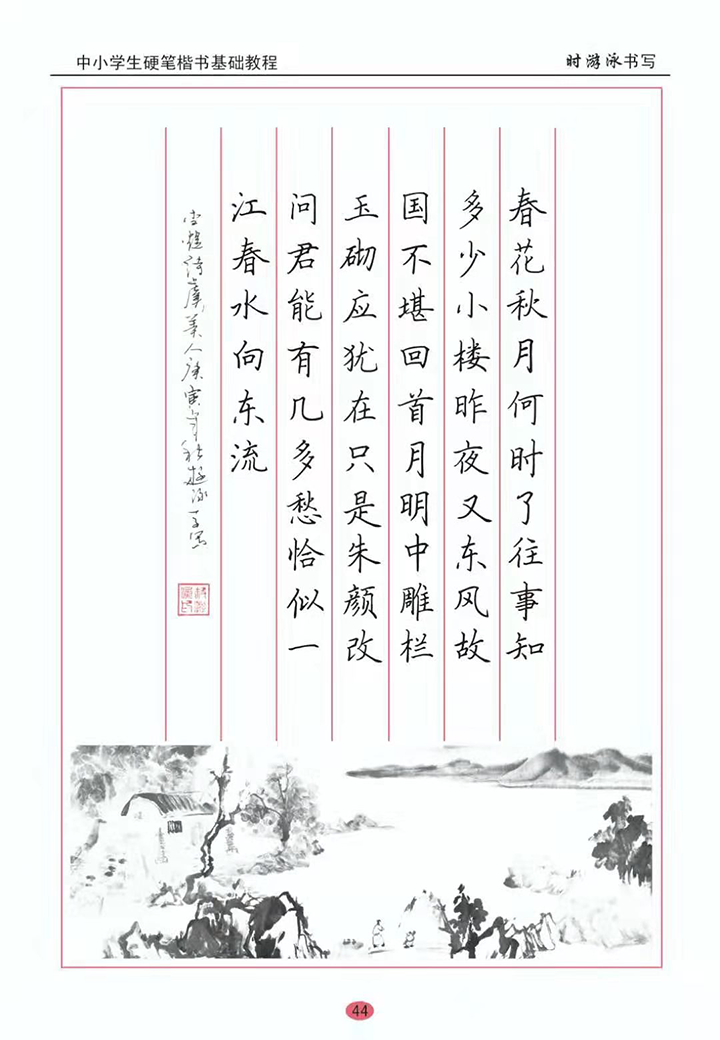 中小学生硬笔楷书基础教程
时游泳书写
春花秋月何时了往事知
多少小楼昨夜又东风故
国不堪回首月明中雕栏
玉砌应犹在只是朱颜改
问君能有几多愁恰似一
江春水向东流
李煜诗虞美人庚寅年秋游泳书写
44